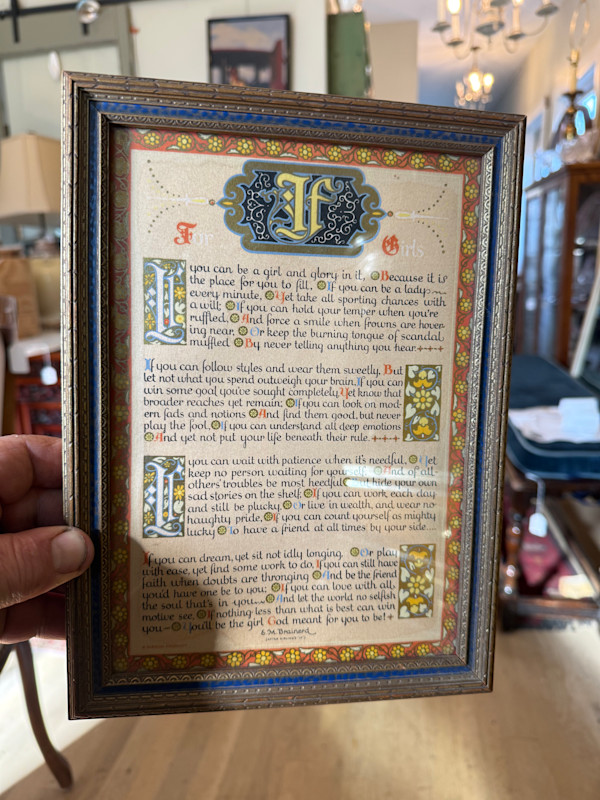 If
For Girls
If you can be a girl and glory in it, Because it is
the place for you to fill, If you can be a lady
every minute, Yet take all sporting chances with
a will; If you can hold your temper when you're
ruffled, And force a smile when frowns are hover-
ing near, Or keep the burning tongue of scandal
muffled By never telling anything you hear.
If you can follow styles and wear them sweetly, But
let not what you spend outweigh your brain, If you can
win some goal you've sought completely, Yet know that
broader reaches yet remain; If you can look on mod-
ern fads and notions And find them good, but never
play the fool, If you can understand all deep emotions
And yet not put your life beneath their rule.
If you can wait with patience when it's needful, Yet
keep no person waiting for yourself, And of all
others' troubles be most heedful But hide your own
sad stories on the shelf; If you can work each day
and still be plucky, Or live in wealth, and wear no
haughty pride, If you can count yourself as mighty
lucky To have a friend at all times by your side....
If you can dream, yet sit not idly longing, Or play
with ease, yet find some work to do, If you can still have
faith when doubts are thronging And be the friend
you'd have one be to you; If you can love with all
the soul that's in you And let the world no selfish
motive see, If nothing less than what is best can win
you— You'll be the girl God meant for you to be!
E.M. Brainerd